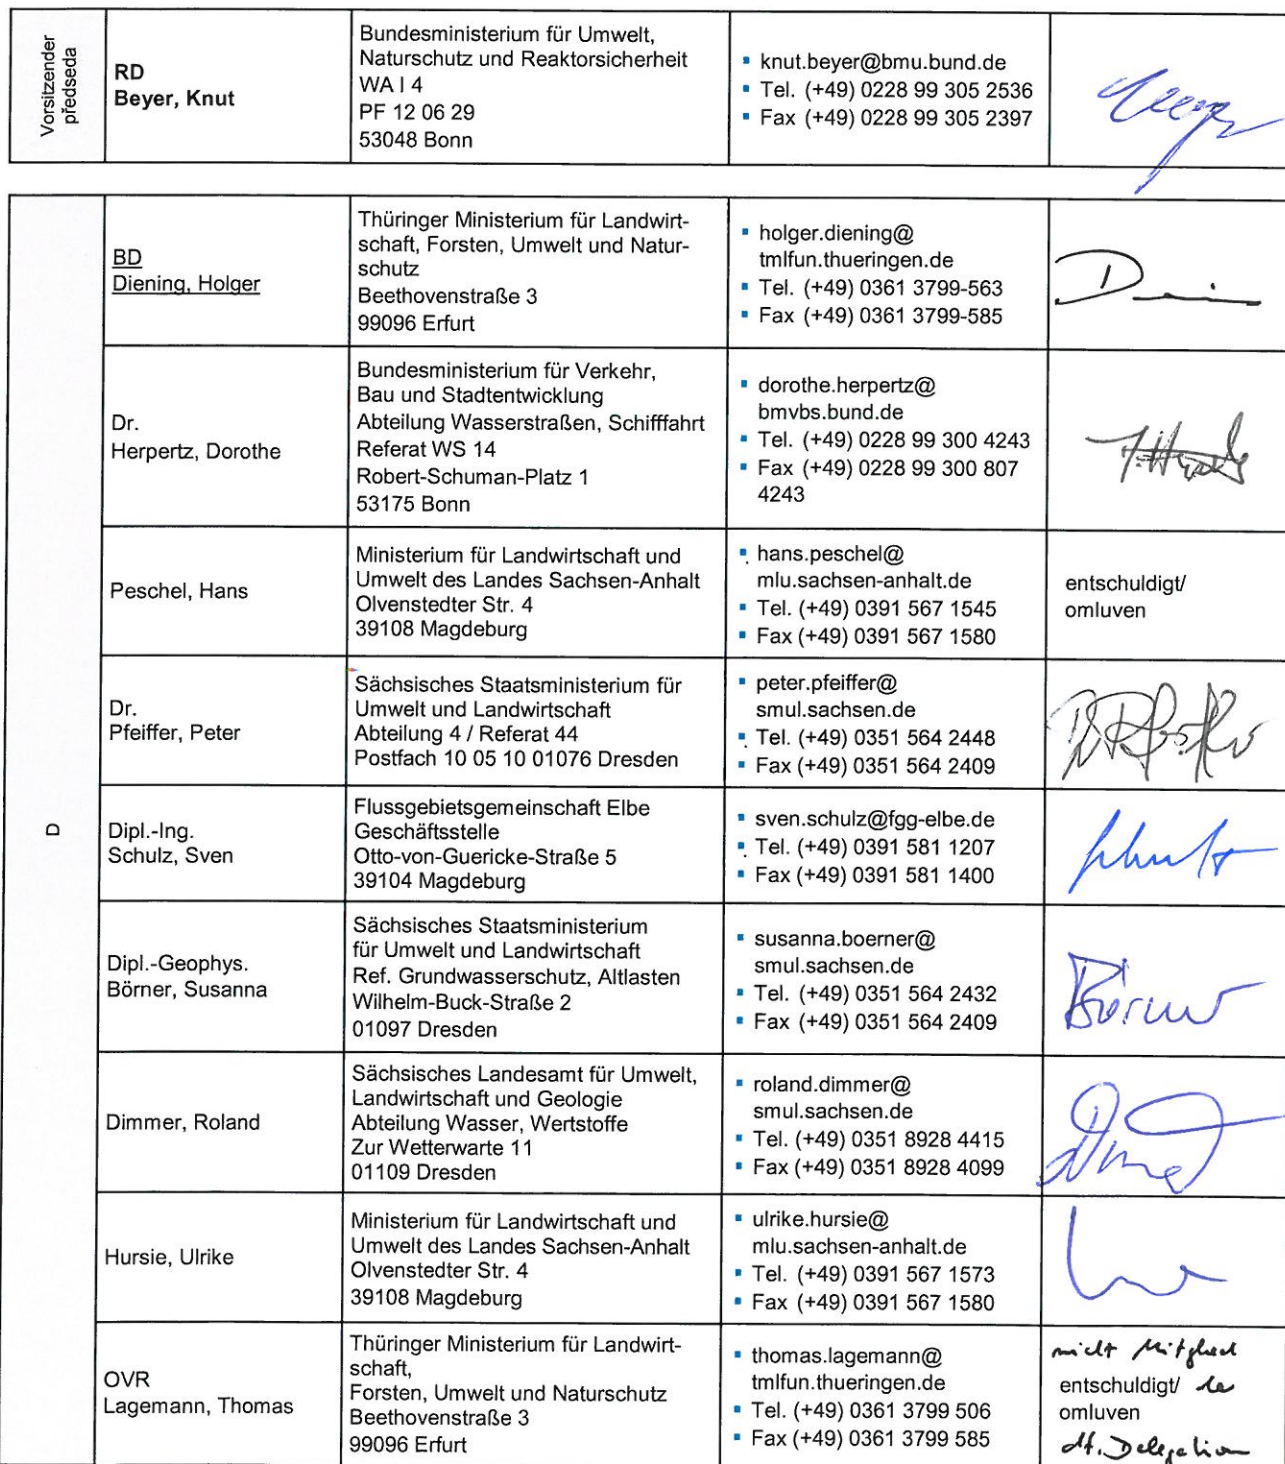 Vorsitzender
předseda
RD
Beyer, Knut
Bundesministerium für Umwelt,
Naturschutz und Reaktorsicherheit
WA I 4
PF 12 06 29
53048 Bonn
▪ knut.beyer@bmu.bund.de
▪ Tel. (+49) 0228 99 305 2536
▪ Fax (+49) 0228 99 305 2397
D
BD
Diening, Holger
Thüringer Ministerium für Landwirt-
schaft, Forsten, Umwelt und Natur-
schutz
Beethovenstraße 3
99096 Erfurt
▪ holger.diening@
tmlfun.thueringen.de
▪ Tel. (+49) 0361 3799-563
▪ Fax (+49) 0361 3799-585
Dr.
Herpertz, Dorothe
Bundesministerium für Verkehr,
Bau und Stadtentwicklung
Abteilung Wasserstraßen, Schifffahrt
Referat WS 14
Robert-Schuman-Platz 1
53175 Bonn
▪ dorothe.herpertz@
bmvbs.bund.de
▪ Tel. (+49) 0228 99 300 4243
▪ Fax (+49) 0228 99 300 807
4243
Peschel, Hans
Ministerium für Landwirtschaft und
Umwelt des Landes Sachsen-Anhalt
Olvenstedter Str. 4
39108 Magdeburg
▪ hans.peschel@
mlu.sachsen-anhalt.de
▪ Tel. (+49) 0391 567 1545
▪ Fax (+49) 0391 567 1580
entschuldigt/
omluven
Dr.
Pfeiffer, Peter
Sächsisches Staatsministerium für
Umwelt und Landwirtschaft
Abteilung 4 / Referat 44
Postfach 10 05 10 01076 Dresden
▪ peter.pfeiffer@
smul.sachsen.de
▪ Tel. (+49) 0351 564 2448
▪ Fax (+49) 0351 564 2409
Dipl.-Ing.
Schulz, Sven
Flussgebietsgemeinschaft Elbe
Geschäftsstelle
Otto-von-Guericke-Straße 5
39104 Magdeburg
▪ sven.schulz@fgg-elbe.de
▪ Tel. (+49) 0391 581 1207
▪ Fax (+49) 0391 581 1400
Dipl.-Geophys.
Börner, Susanna
Sächsisches Staatsministerium
für Umwelt und Landwirtschaft
Ref. Grundwasserschutz, Altlasten
Wilhelm-Buck-Straße 2
01097 Dresden
▪ susanna.boerner@
smul.sachsen.de
▪ Tel. (+49) 0351 564 2432
▪ Fax (+49) 0351 564 2409
Börner
Dimmer, Roland
Sächsisches Landesamt für Umwelt,
Landwirtschaft und Geologie
Abteilung Wasser, Wertstoffe
Zur Wetterwarte 11
01109 Dresden
▪ roland.dimmer@
smul.sachsen.de
▪ Tel. (+49) 0351 8928 4415
▪ Fax (+49) 0351 8928 4099
Hursie, Ulrike
Ministerium für Landwirtschaft und
Umwelt des Landes Sachsen-Anhalt
Olvenstedter Str. 4
39108 Magdeburg
▪ ulrike.hursie@
mlu.sachsen-anhalt.de
▪ Tel. (+49) 0391 567 1573
▪ Fax (+49) 0391 567 1580
OVR
Lagemann, Thomas
Thüringer Ministerium für Landwirt-
schaft,
Forsten, Umwelt und Naturschutz
Beethovenstraße 3
99096 Erfurt
▪ thomas.lagemann@
tmlfun.thueringen.de
▪ Tel. (+49) 0361 3799 506
▪ Fax (+49) 0361 3799 585
nicht Mitglied
entschuldigt/ der
omluven
dt. Delegation